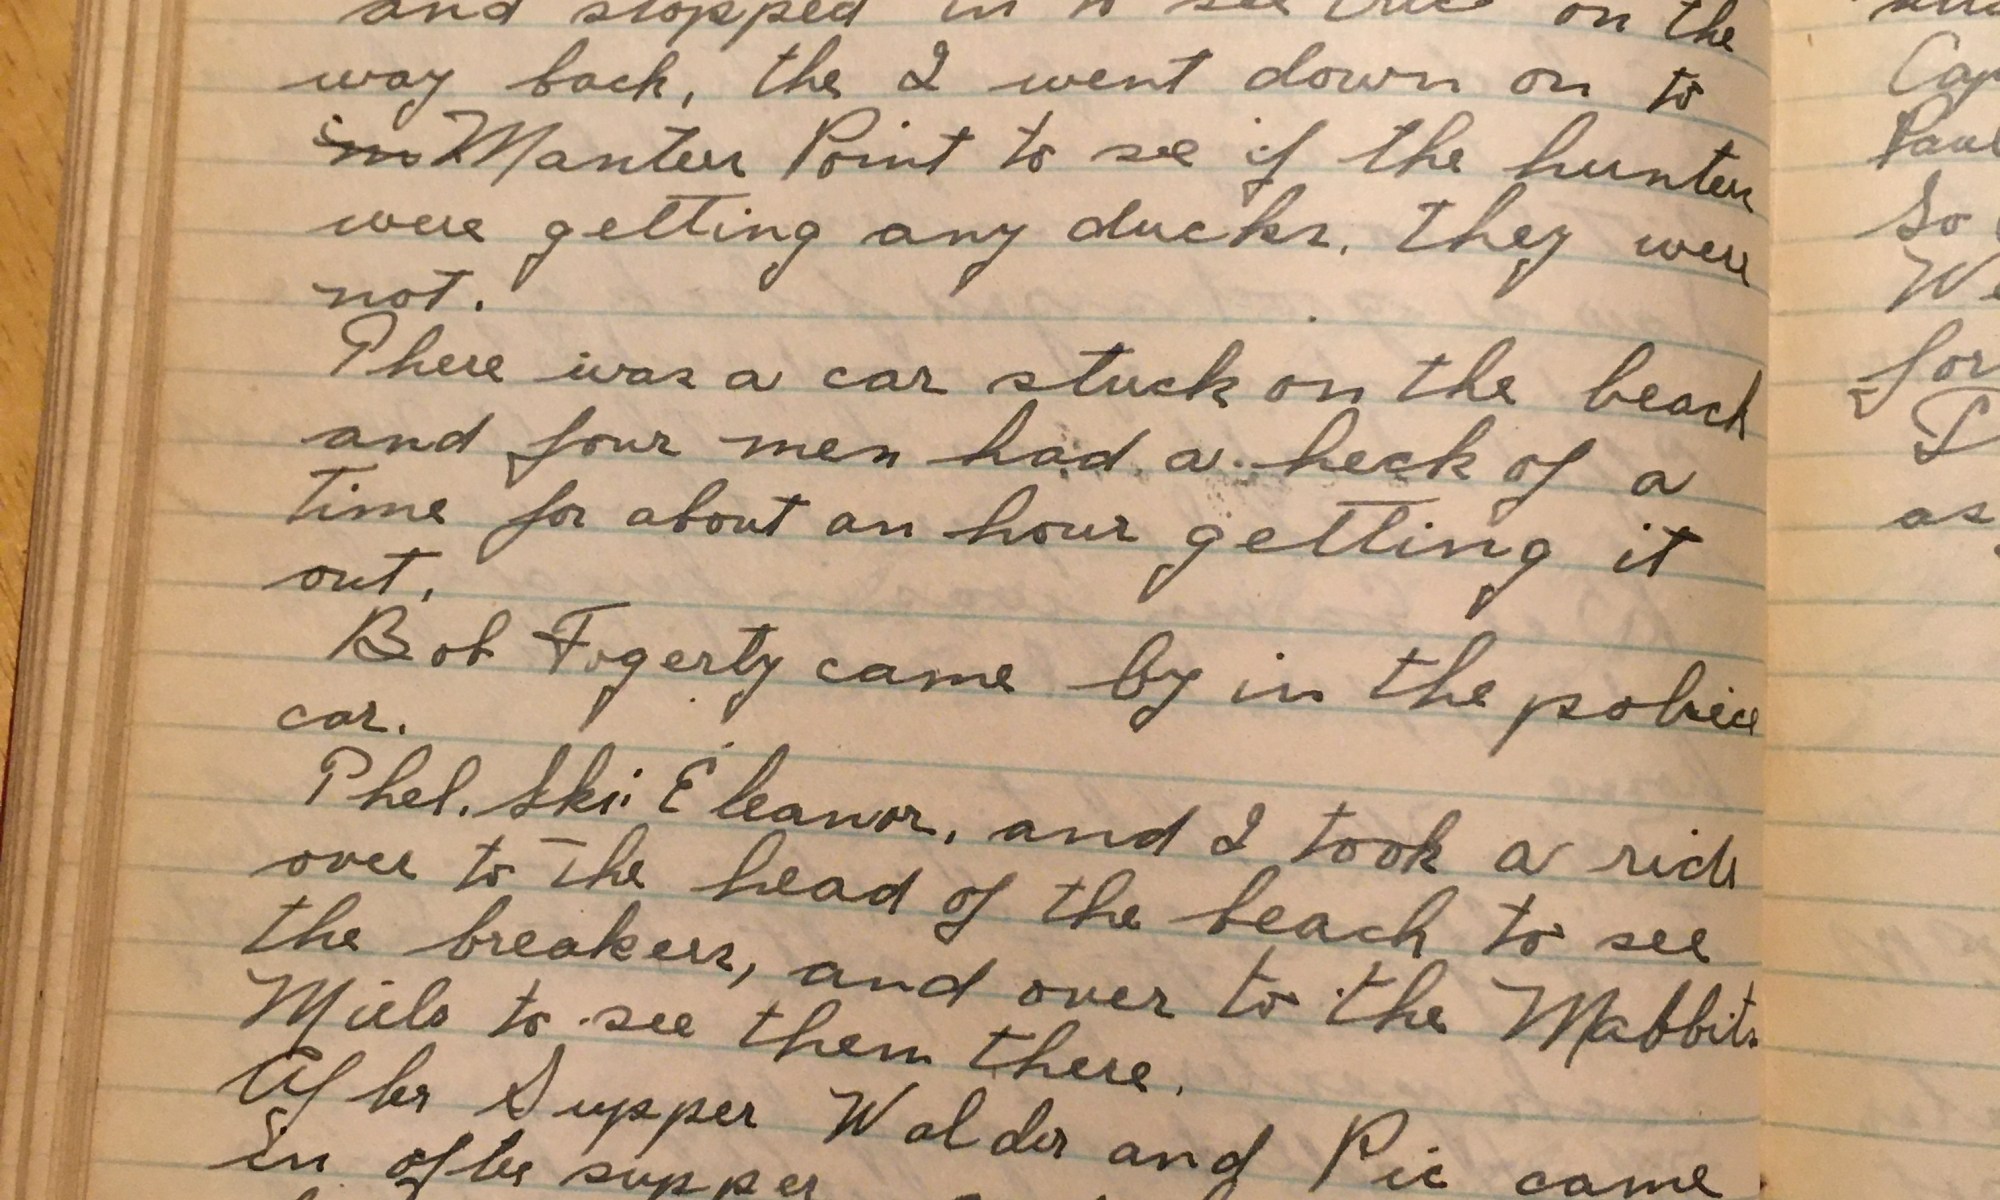 and stopped in to see on the
way back, the I went down on to
Manters Point to see if the hunters
were getting any ducks. they were
not.
There was a car stuck on the beach
and four men had a heck of a
time for about an hour getting it
out.
Bob Fogerty came by in the police
car.
Phel. Ski. Eleanor, and I took a ride
over to the head of the beach to see
the breakers, and over to the Mabbits
to see them there.
After Supper Walder and Pic came
in after supper
Cap
Paul
So
We
for
as